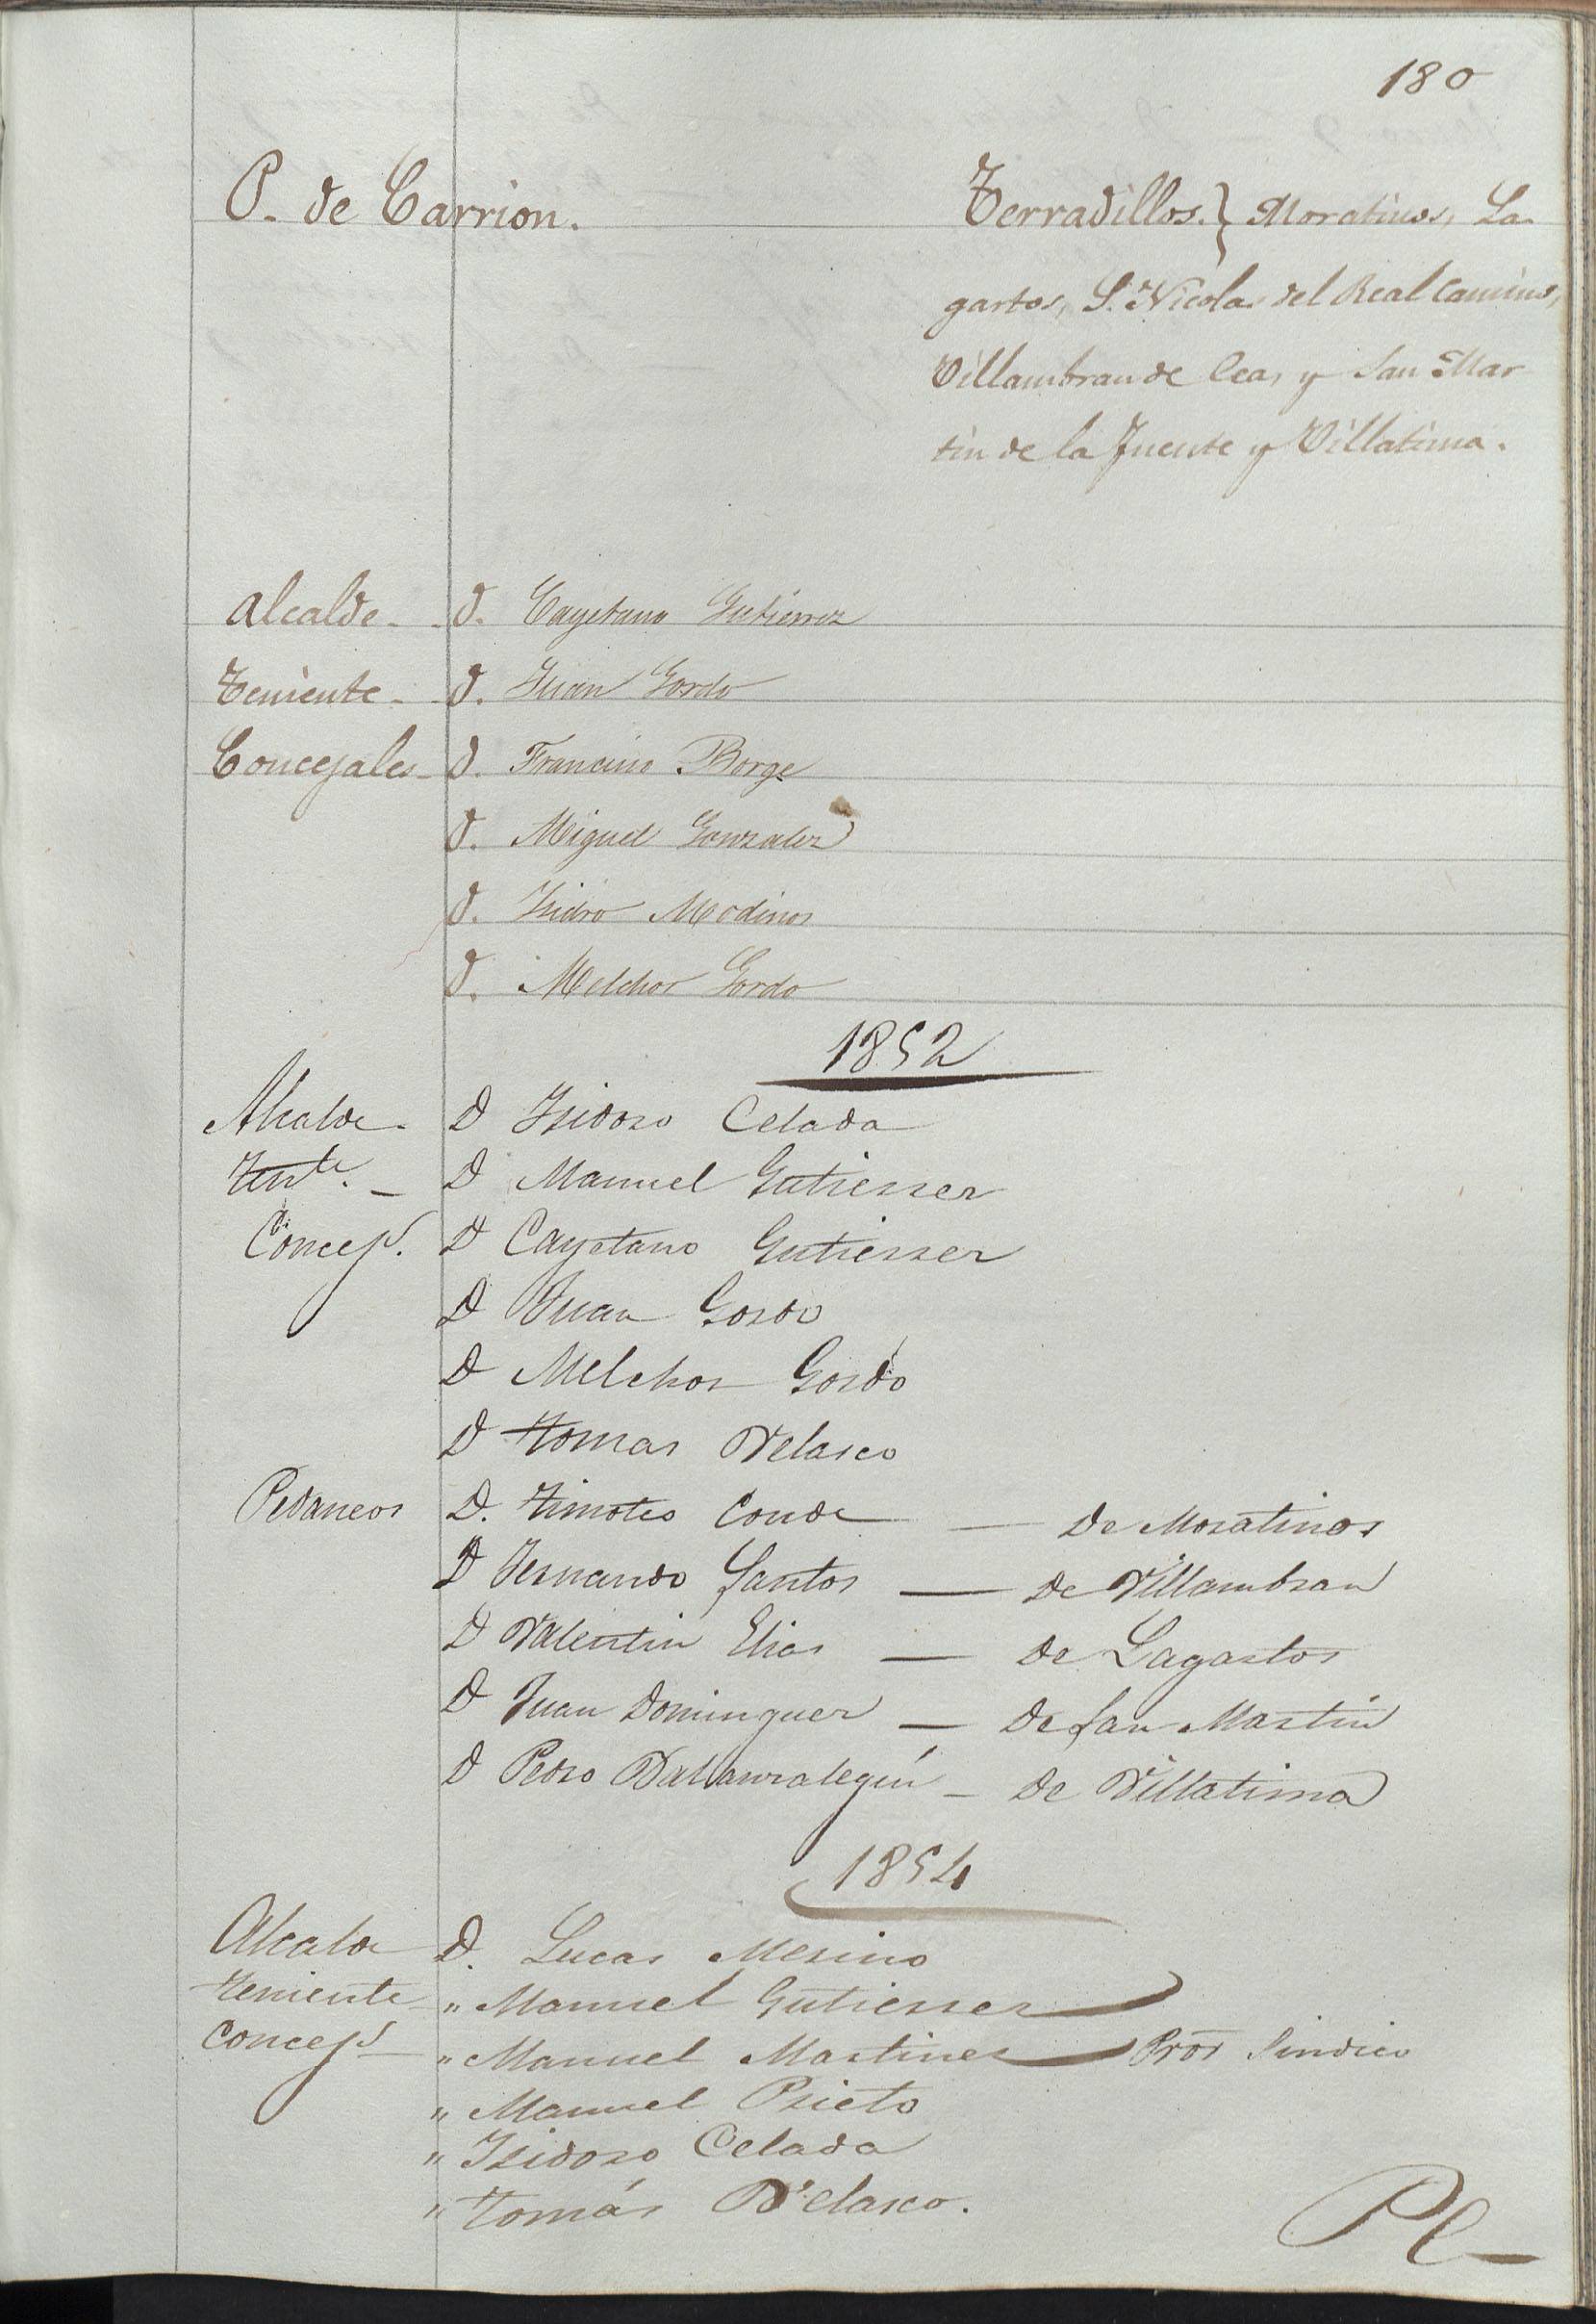 180
P. de Carrion. Terradillos. } Moratinos, La-
gartos, S. Nicolas del Real Camino,
Villambran de Cea, y San Mar
tin de la Fuente y Villatima.
Alcalde - - D. Cayetano Gutierrez
Teniente - - D. Juan Gordo
Concejales - D. Francisco Borge
D. Miguel Gonzalez
D. Isidro Modinos
D. Melchor Gordo
1852
Alcalde - D Isidoro Celada
Tente. - D Manuel Gutierrez
Concejs. D Cayetano Gutierrez
D Juan Gordo
D Melchor Gordo
D Tomas Velasco
Pedaneos D. Timoteo Conde — De Moratinos
D Fernando Santos — De Villambran
D Valentin Elias — De Lagartos
D Juan Dominguez — De San Martin
D Pedro — De Villatima
1854
Alcalde D. Lucas Merino
Teniente " Manuel Gutierrez
Concejs " Manuel Martinez Pror Sindico
" Manuel Prieto
" Isidoro Celada
" Tomás Velasco.